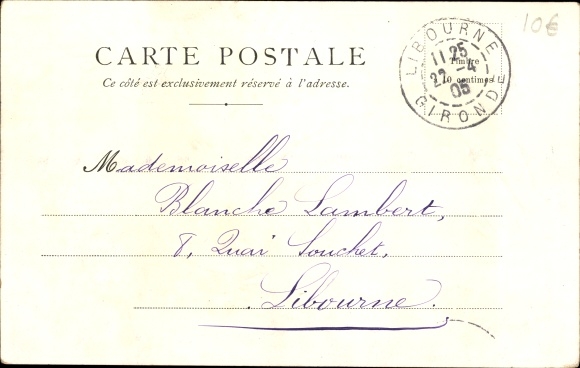 10€
LIBOURNE
11 25
Timbre
22 -4
à 10 centimes
05
GIRONDE
CARTE POSTALE
Ce côté est exclusivement réservé à l'adresse.
Mademoiselle
Blanche Lambert,
8, Quai Souchet,
Libourne.